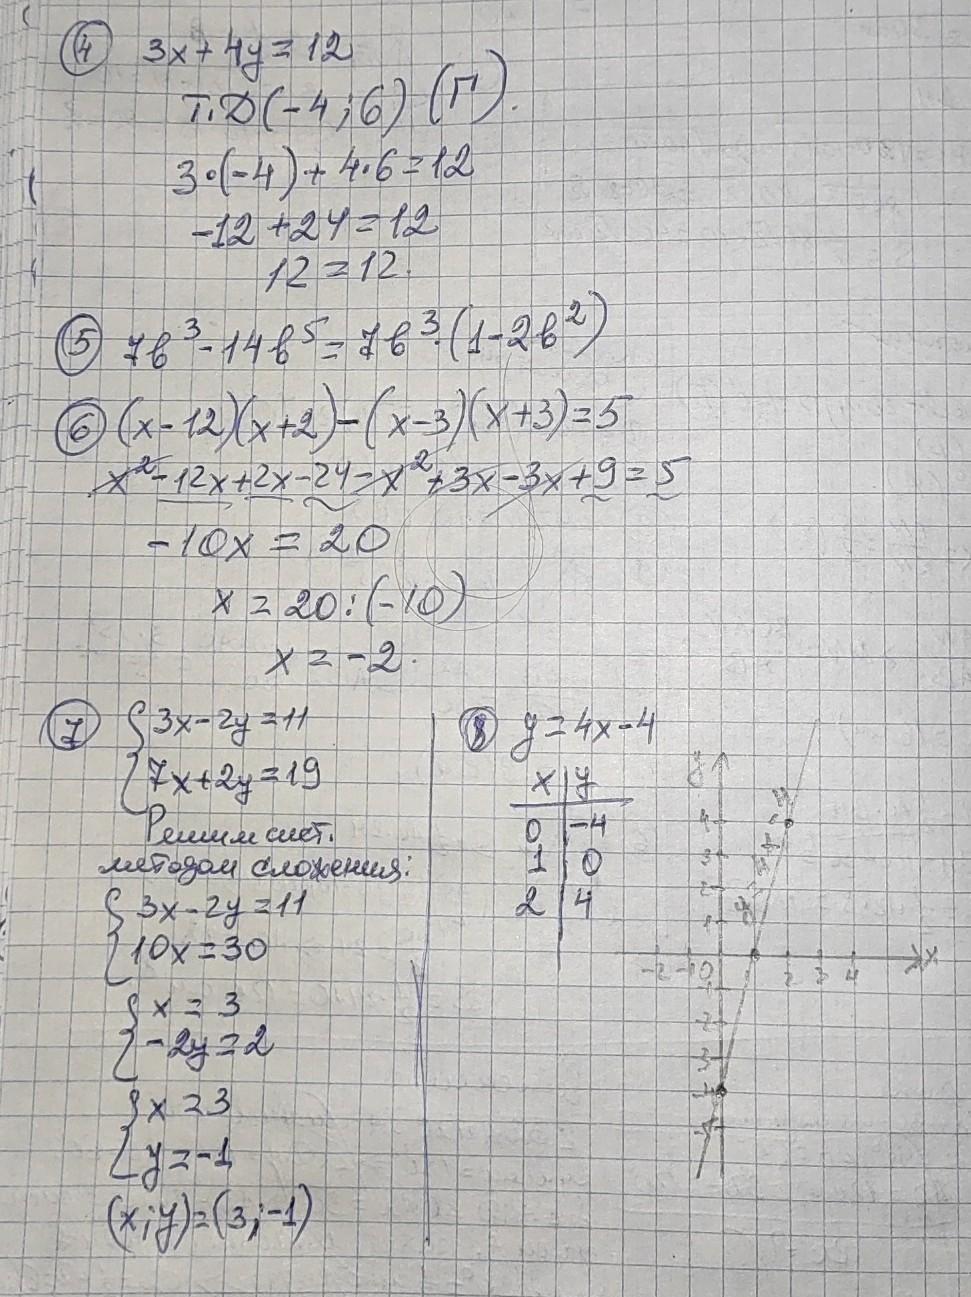 4 3x + 4y = 12
т. D (-4; 6) (Г).
3·(-4) + 4·6 = 12
-12 + 24 = 12
12 = 12.
5 7b³ - 14b⁵ = 7b³·(1 - 2b²)
6 (x - 12)(x + 2) - (x - 3)(x + 3) = 5
x² - 12x + 2x - 24 - x² + 3x - 3x + 9 = 5
-10x = 20
x = 20 : (-10)
x = -2.
7 { 3x - 2y = 11
7x + 2y = 19
Решим сист.
методом сложения:
{ 3x - 2y = 11
10x = 30
{ x = 3
-2y = 2
{ x = 3
y = -1
(x; y) = (3; -1)
8 y = 4x - 4
x | y
0 | -4
1 | 0
2 | 4
y
4
3
2
1
-2 -1 0 1 2 3 4 x